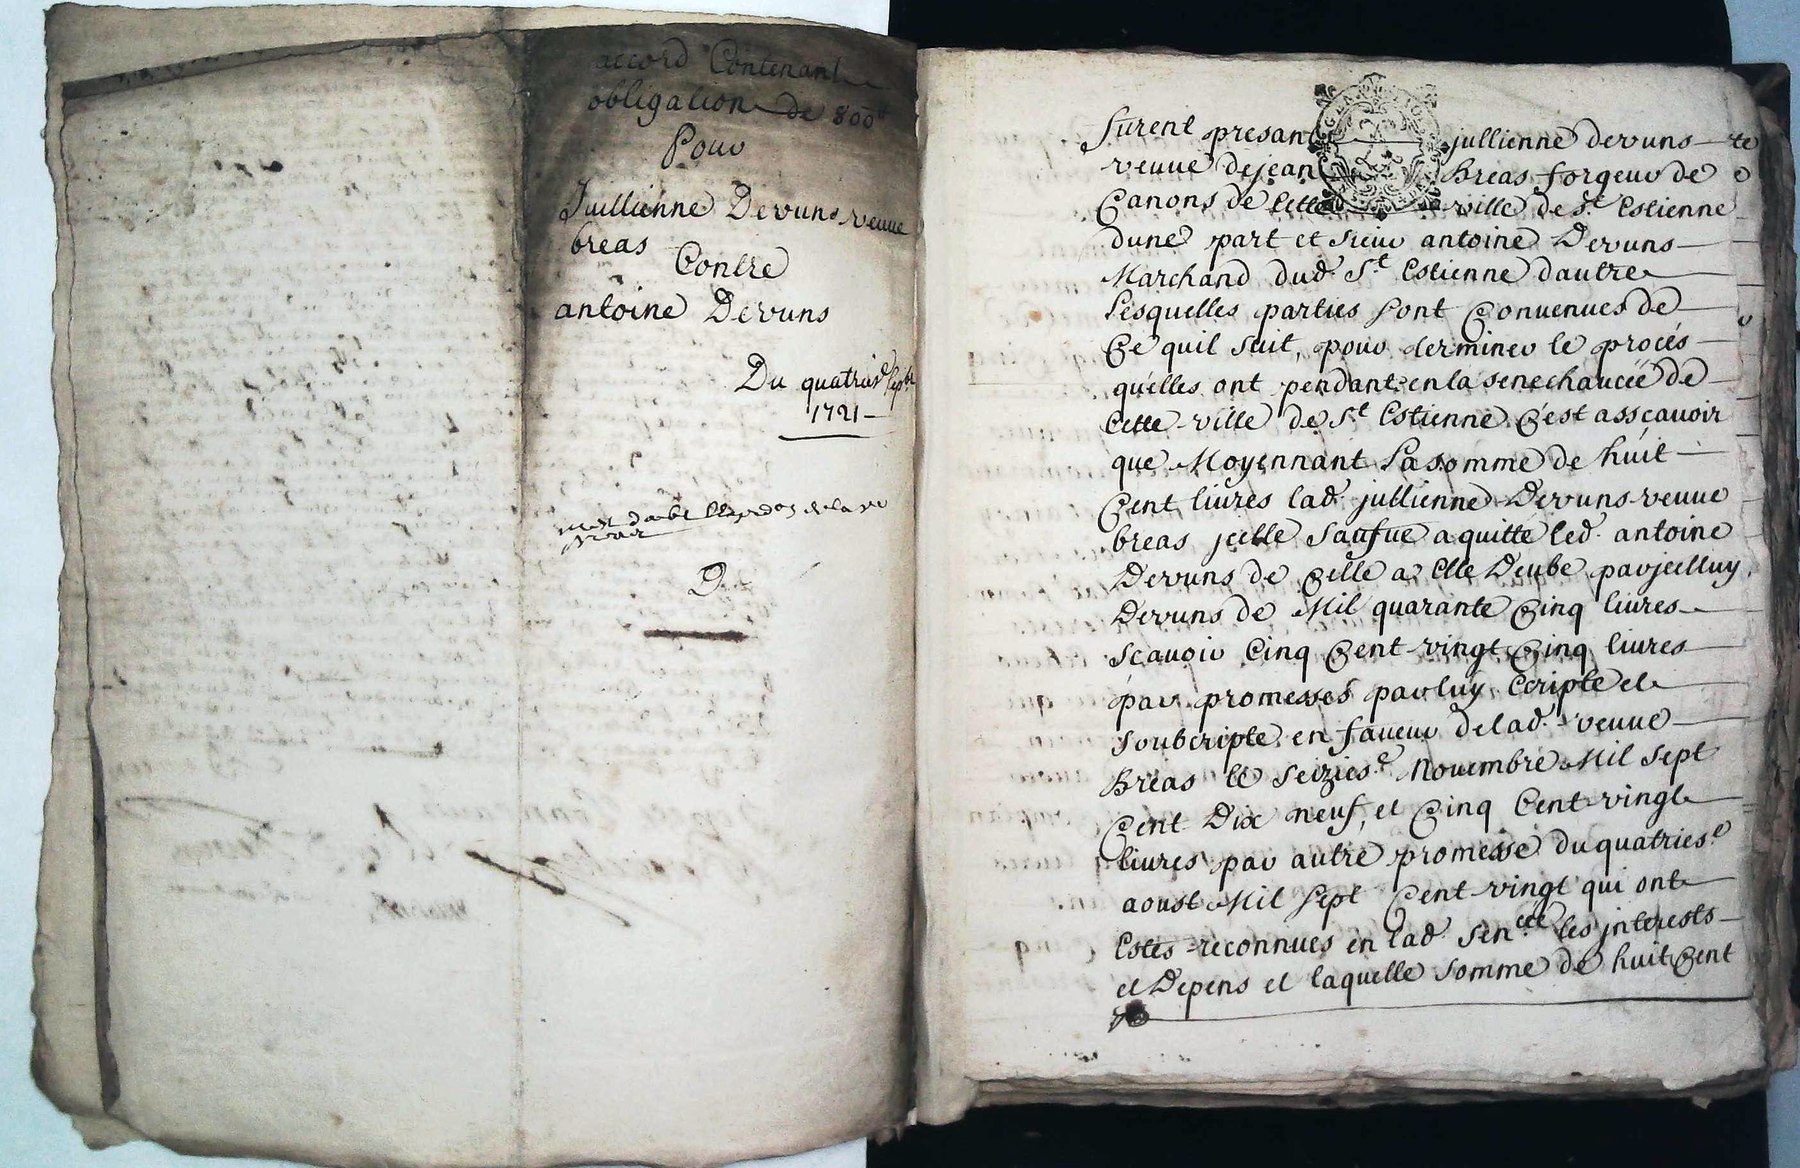 accord Contenant
obligation de 800ᵗᵗ
Pour
Juillienne Devuns veuue
breas
Contre
antoine Devuns
Du quatries.ᵉ Sepbʳᵉ
1721
furent presant jullienne devuns
veuue de jean Breas forgeur de
Canons de Cette ville de Sᵗ Estienne
dune part et sieur antoine Devuns
Marchand dud. Sᵗ Estienne dautre
Lesquelles parties sont Conuenues de
Ce quil suit, pour terminer le procés
quelles ont pendant en la senechaucée de
Cette ville de Sᵗ Estienne C'est assçauoir
que Moyennant la somme de huit
Cent liures lad. jullienne Devuns veuue
breas jcelle aquitte led. antoine
Devuns de Celle a Elle Deube par jcelluy
Devuns de Mil quarante Cinq liures
scauoir Cinq Cent vingt Cinq liures
par promesses par luy Ecripte et
soubcripte en faueur de lad. veuue
Breas le seizies.ᵉ Nouembre Mil sept
Cent Dix neuf, et Cinq Cent vingt
liures par autre promesse du quatries.ᵉ
aoust Mil sept Cent vingt qui ont
Estés reconnues en lad. senᶜᵉᵉ les jnterests
et Depens et laquelle somme de huit Cent